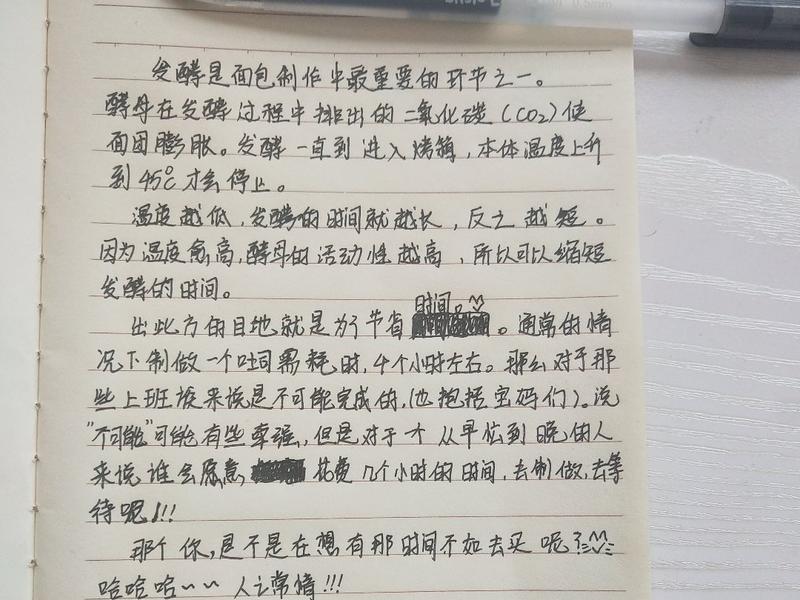 0.5mm
发酵是面包制作中最重要的环节之一。
酵母在发酵过程中排出的二氧化碳(CO2)使
面团膨胀。发酵一直到进入烤箱,本体温度上升
到45℃才会停止。
温度越低,发酵的时间就越长,反之越短。
因为温度愈高,酵母的活动性越高,所以可以缩短
发酵的时间。
时间。
出此方的目地就是为了节省。通常的情
况下制做一个吐司需耗时,4个小时左右。那么对于那
些上班族来说是不可能完成的,(也抱括宝妈们)。说
"不可能"可能有些牵强,但是对于一个从早忙到晚的人
来说谁会愿意花费几个小时的时间,去制做,去等
待呢!!!
那个你,是不是在想有那时间不如去买呢?
哈哈哈~~人之常情!!!